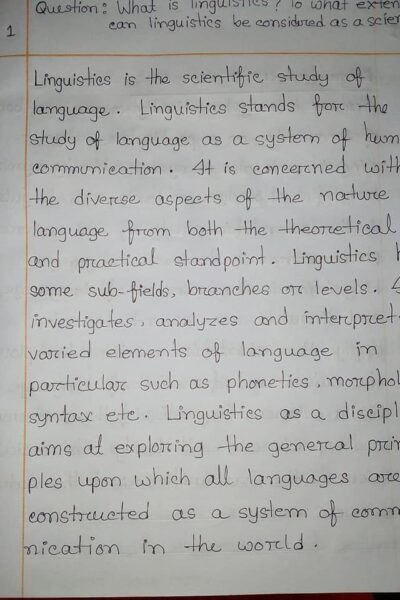 Question: What is linguistics? To what exten
can linguistics be considered as a scien
1
Linguistics is the scientific study of
language. Linguistics stands for the
study of language as a system of hum
communication. It is concerned with
the diverse aspects of the nature
language from both the theoretical
and practical standpoint. Linguistics h
some sub-fields, branches or levels.
investigates, analyzes and interpret
varied elements of language in
particular such as phonetics, morphol
syntax etc. Linguistics as a discipl
aims at exploring the general prin
ples upon which all languages are
constructed as a system of comm
nication in the world.